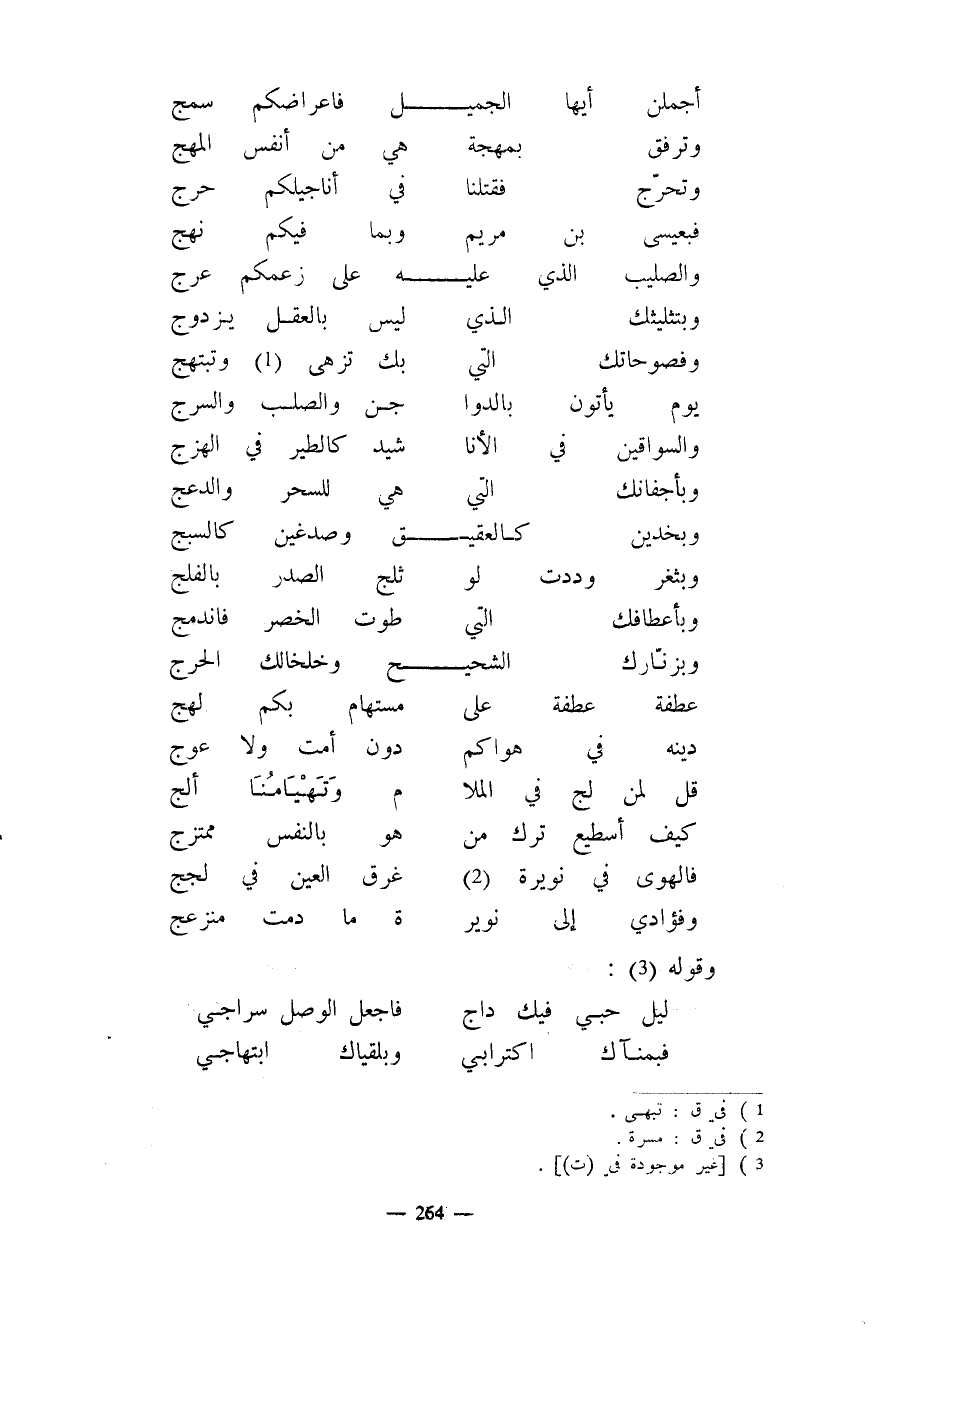 أجملن أيها الجميــــــل فاعراضكم سمج
وترفق بمهجة هي من أنفس المهج
وتحرّج فقتلنا في أناجيلكم حرج
فبعيسى بن مريم وبما فيكم نهج
والصليب الذي عليــــــه على زعمكم عرج
وبتثليثك الذي ليس بالعقل يزدوج
وفصوحاتك التّي بك تزهى (1) وتبتهج
يوم يأتون بالدوا جن والصلب والسرج
والسواقين في الأنا شيد كالطير في الهزج
وبأجفانك التّي هي للسحر والدعج
وبخدين كالعقيــــــق وصدغين كالسبج
وبثغر وددت لو ثلج الصدر بالفلج
وبأعطافك التّي طوت الخصر فاندمج
وبزنّارك الشحيــــــح وخلخالك الحرج
عطفة عطفة على مستهام بكم لهج
دينه في هواكم دون أمت ولا عوج
قل لمن لج في الملا م وَتَهْيَامُنَا ألج
كيف أسطيع ترك من هو بالنفس ممتزج
فالهوى في نويرة (2) غرق العين في لجج
وفؤادي إلى نوير ة ما دمت منزعج
وقوله (3) :
ليل حبي فيك داج فاجعل الوصل سراجي
فبمنآك اكترابي وبلقياك ابتهاجي
1 ) في ق : تبهى .
2 ) في ق : مسرة .
3 ) [غير موجودة في (ت)] .
— 264 —